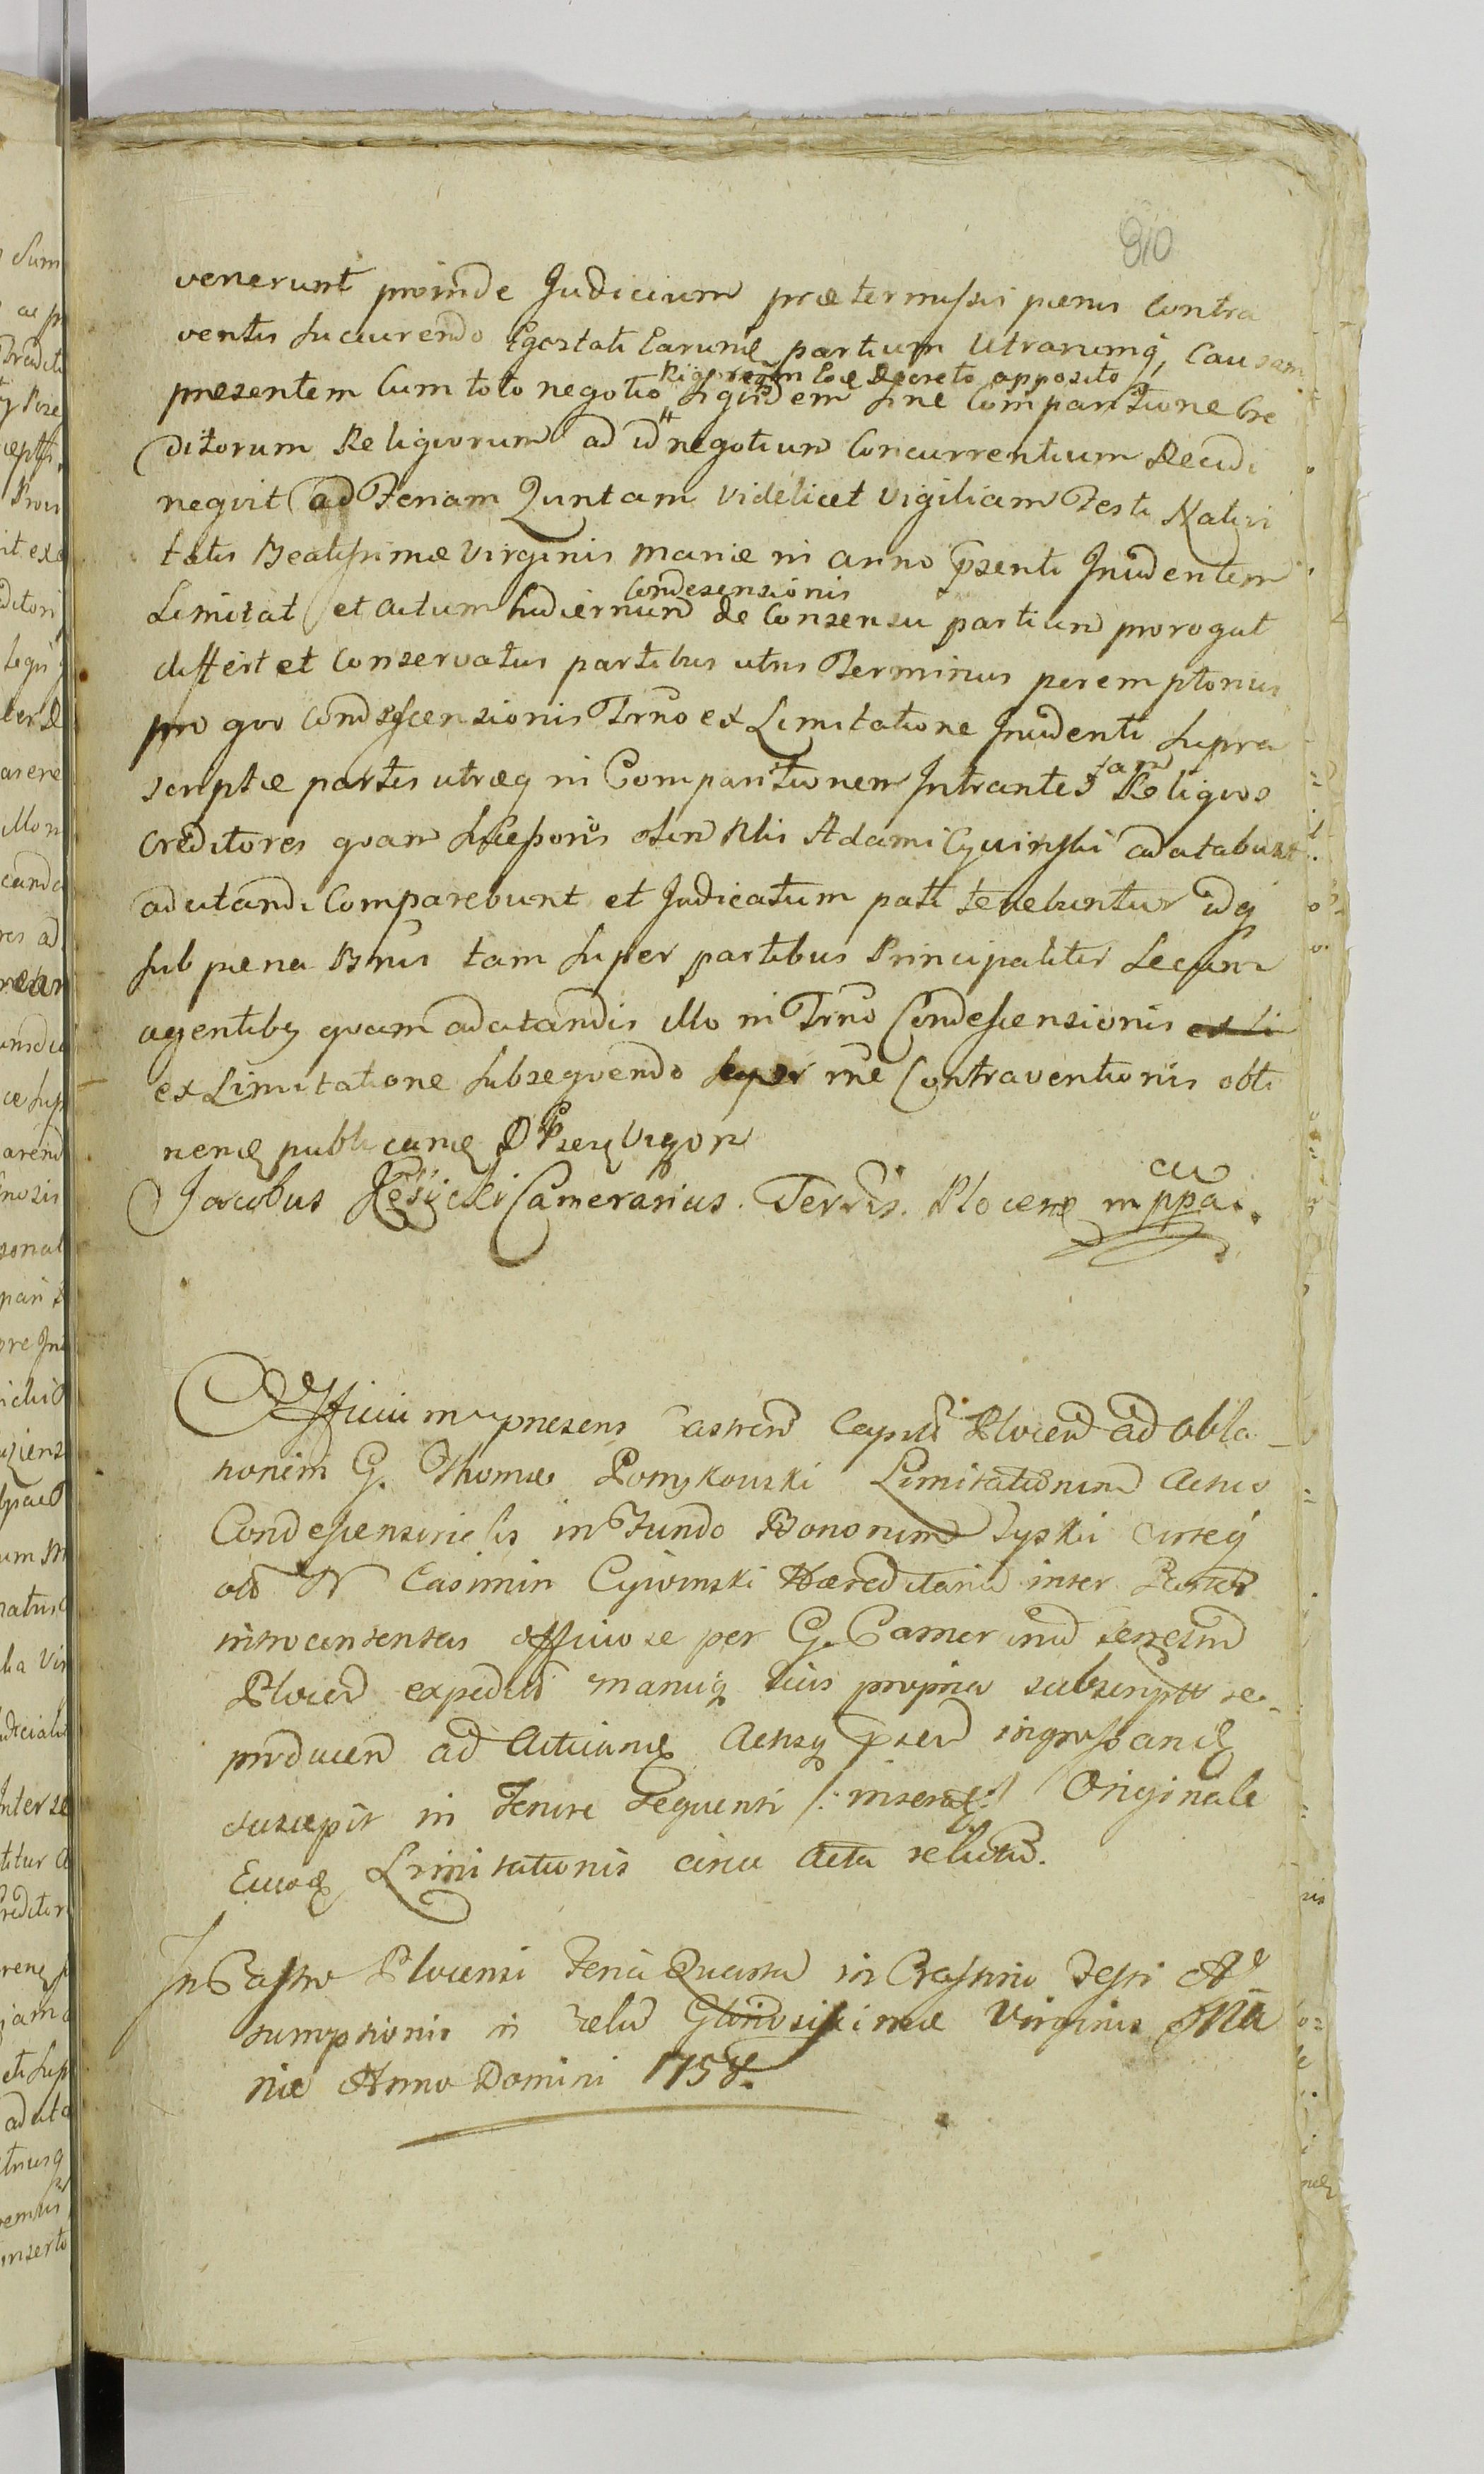 310
venerunt proinde Judicium prætermissis pænis Contra
ventis sucurendo Egestati Earumq partium Utrarumq, Causam
presentem Cum toto negotio Rigorem Eoq Decreto apposito siqvidem sine Comparitione Cre
ditorum Religvorum ad id negotium Concurrentium Recidi
neqvit ad Feriam Qvintam videlicet Vigiliam Festi Nativi
tatis Beatissimæ Virginis Mariæ in anno p̃senti Jncidentem
Limitat et actum hodiernum Condesensionis de Consensu partium prorogat
differt et Conservatus partibus utris Terminus peremptorius
pro qvo Condescensionis Tr̃no ex Limitatione Jncidenti supra
scriptæ partes utræq in Comparitionem Jntrantes tam Religvos
Creditores qvam successores olim Adami Cywiński adcitabunt
adcitandi Comparebunt et Judicatum pati tenebuntur idq
sub pæna Bnis tam super partibus Principaliter secum
agentibq qvam adcitandis illo in Tr̃no Condescensionis ex Li
ex Limitatione subseqvendo super rñe Contraventionis obti
nenq publicanq D Psenq Vigore
Jacobus Camerarius Terris. Plocenq mppa.
Officium presens Castren Capitł Plocen ad obla
tionem G. Thomæ Pomykowski Limitationem Actus
Condescensorialis in Fundo Bonorum Lyski
olim Casimiri Cywinski Hæreditariis inter Partes
introcontentas officiose per G. Camerarium Terrestrem
Plocen expeditł manuq eius propria subscriptł re
producen ad Acticanq Actisq psen ingrossanq
suscepit in Tenore Seqventi /: inseratq :/ Originale
Eiusdq Limitationis circa Acta relictum.
Jn Castro Plocensi Feria Quarta in Crastino Festi As
sumptionis in Cælum Gloriosissimæ Virginis Ma
riæ Anno Domini 1758.